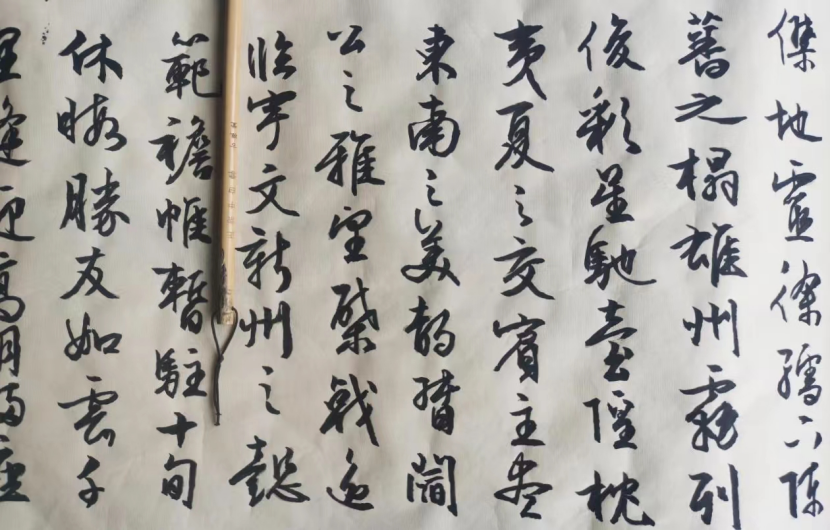 傑地靈徐孺下陳
蕃之榻雄州霧列
俊彩星馳臺隍枕
夷夏之交賓主盡
東南之美都督閻
公之雅望棨戟遙
臨宇文新州之懿
範襜帷暫駐十旬
休暇勝友如雲千
里逢迎高朋滿座